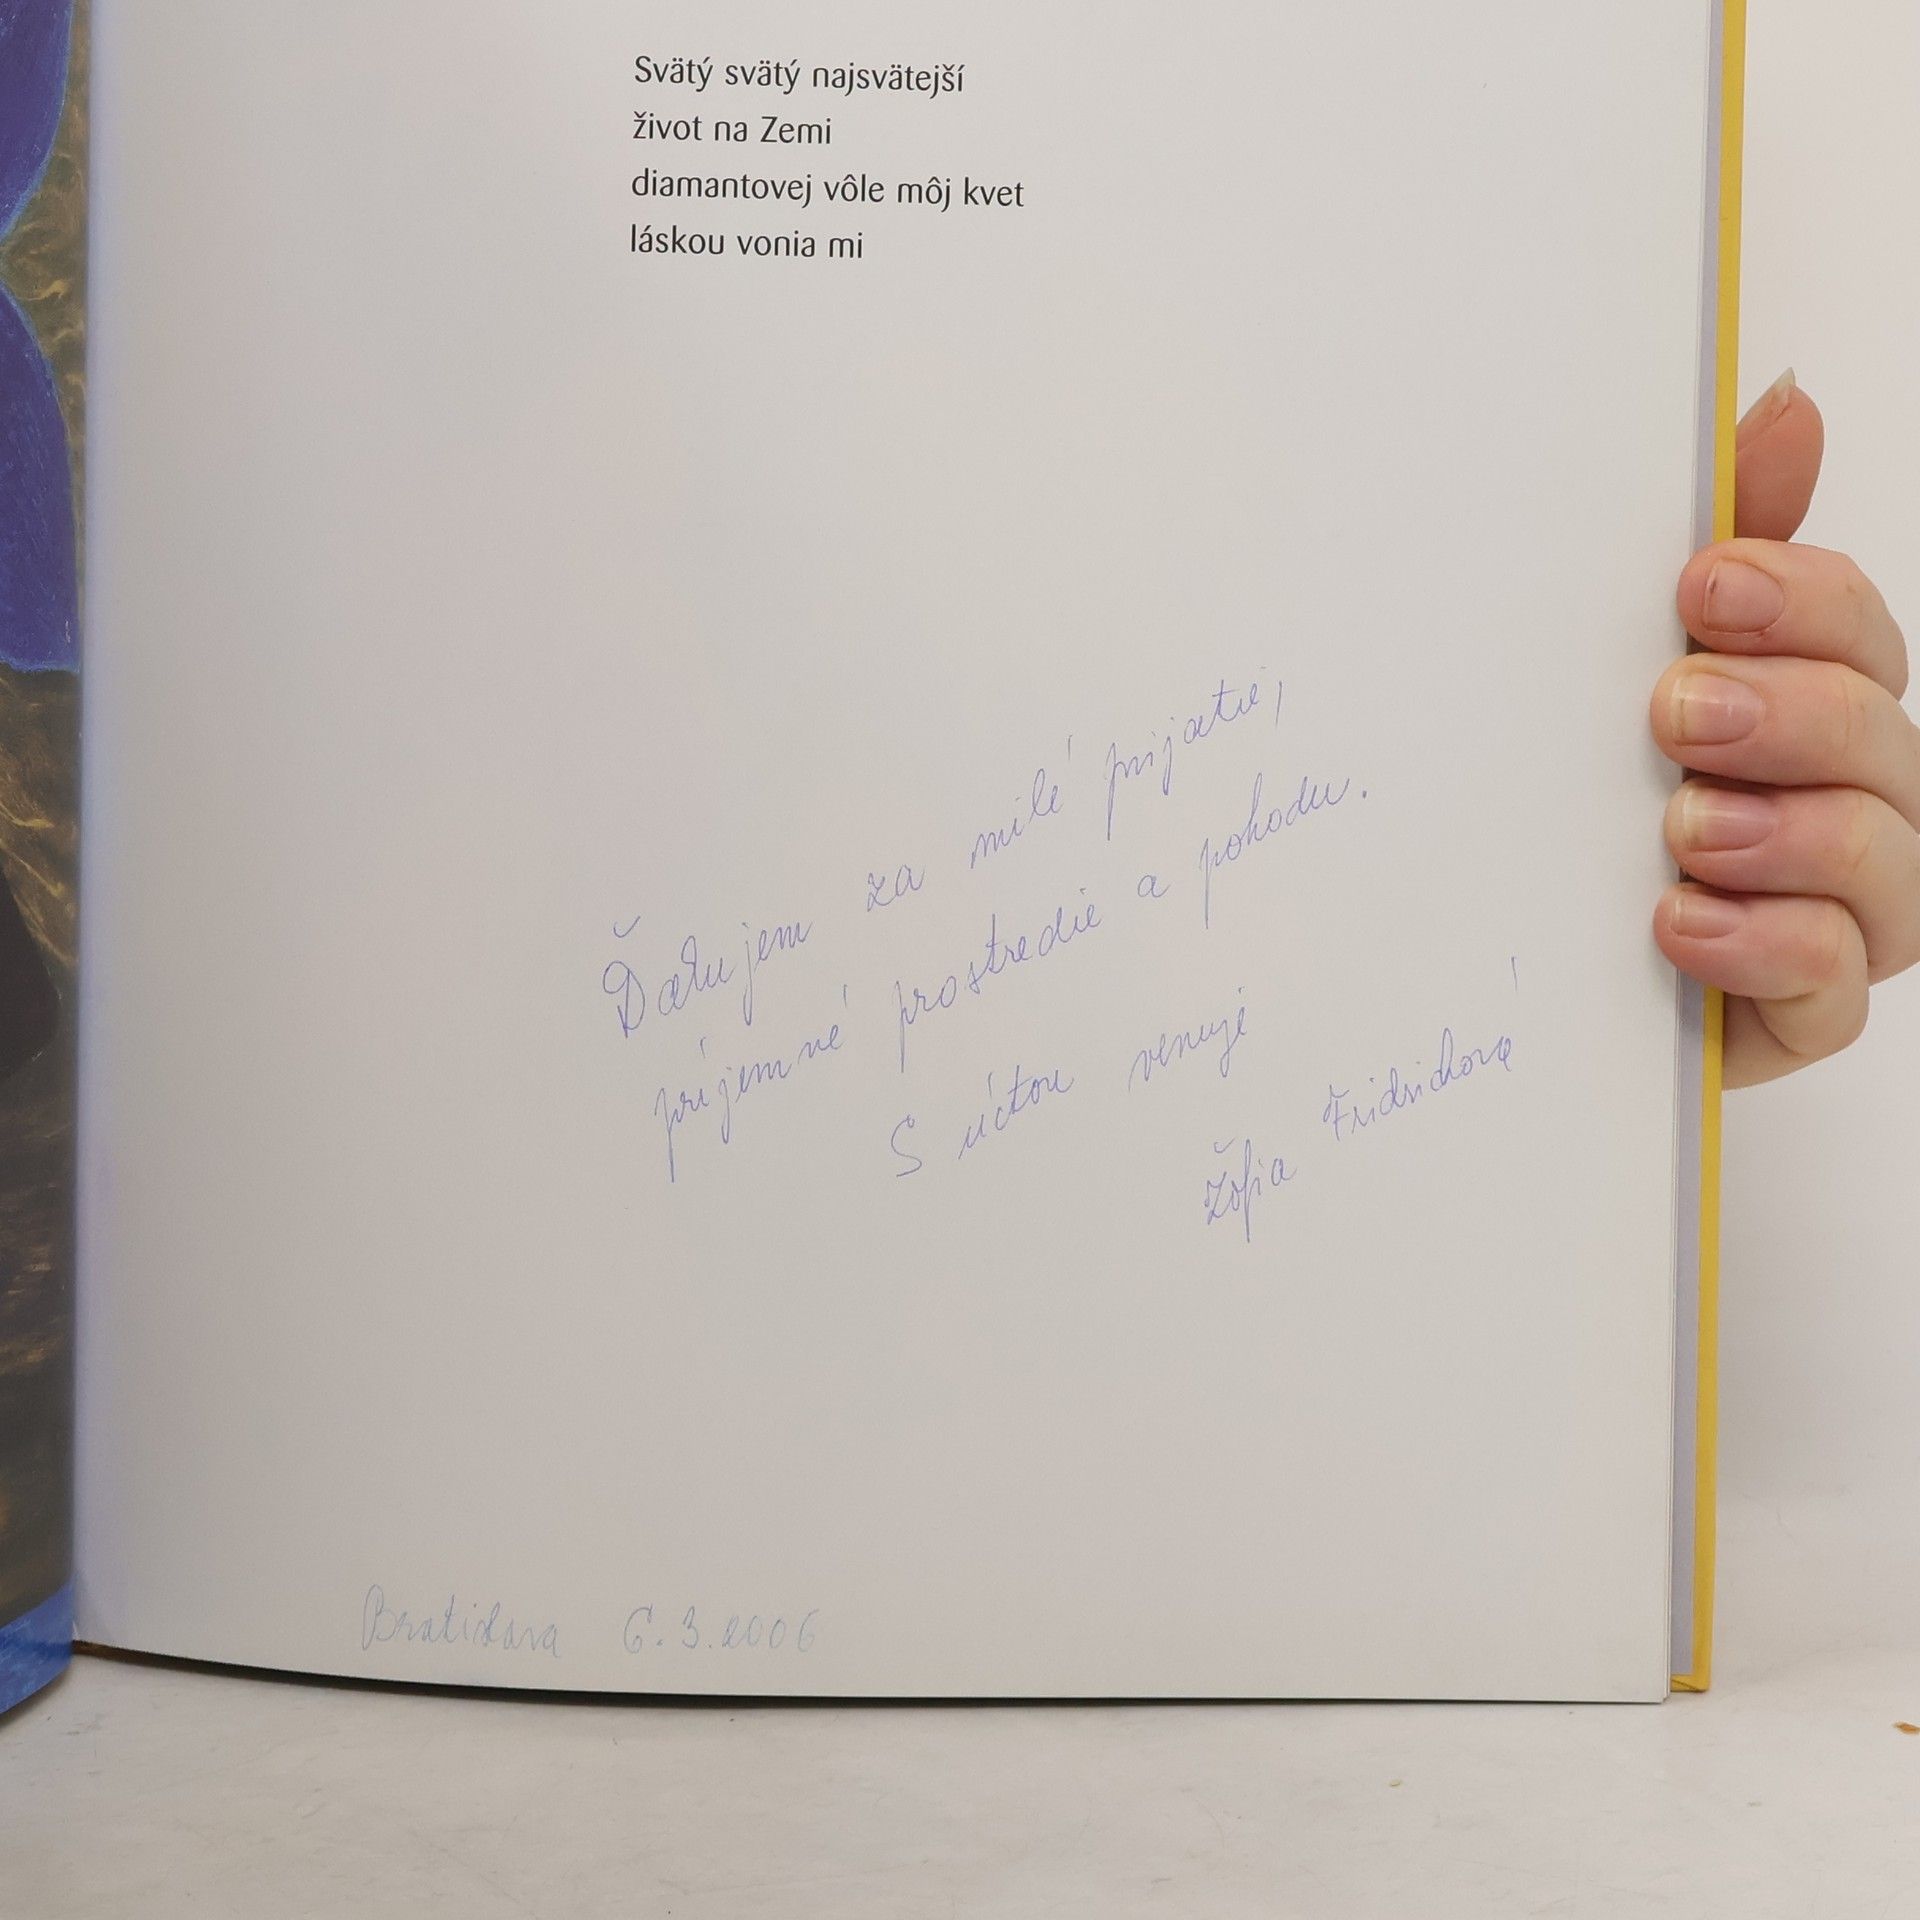 Svätý svätý najsvätejší
život na Zemi
diamantovej vôle môj kvet
láskou vonia mi
Ďakujem za milé prijatie,
príjemné prostredie a pohodu.
S úctou venuje
Žofia Fridrichová
Bratislava 6.3.2006